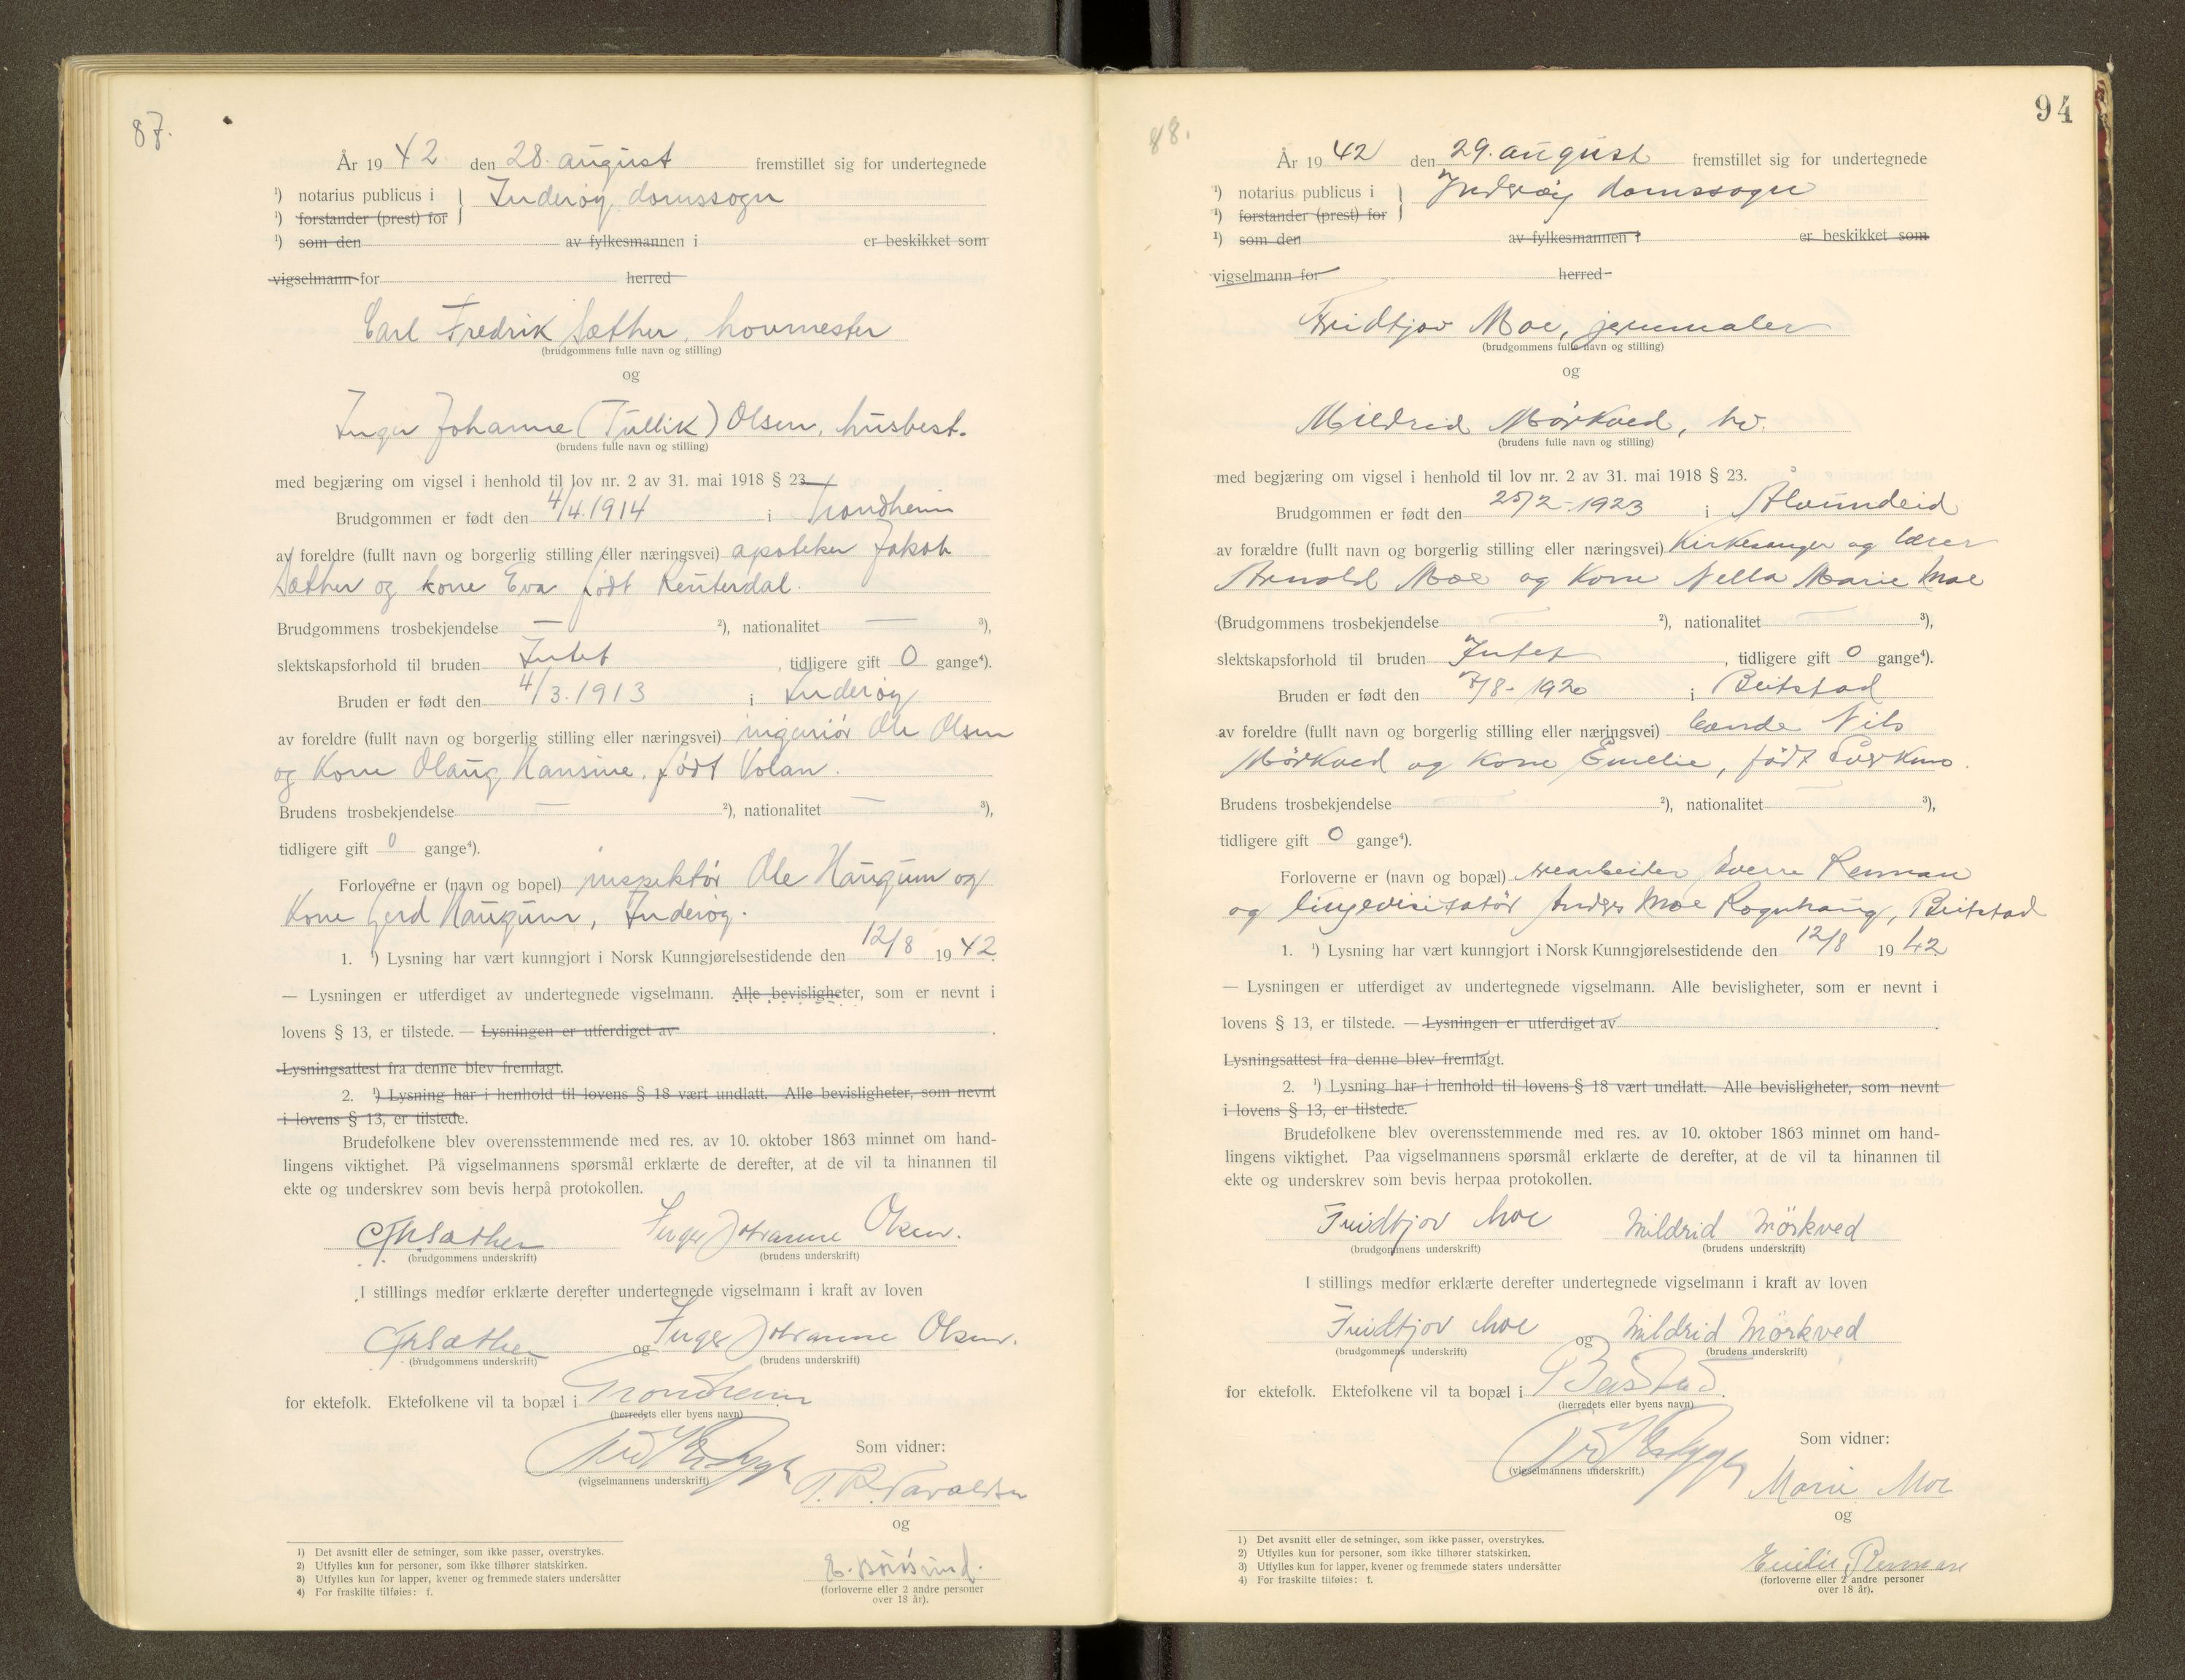 87.
År 19 42 den 28. august fremstillet sig for undertegnede
¹) notarius publicus i } Inderøy domssogn
¹) forstander (prest) for
¹) som den av fylkesmannen i er beskikket som
vigselmann for herred
Carl Fredrik Sæther, hovmester
(brudgommens fulle navn og stilling)
og
Inger Johanne (Tullik) Olsen, husbest.
(brudens fulle navn og stilling)
med begjæring om vigsel i henhold til lov nr. 2 av 31. mai 1918 § 23
Brudgommen er født den 4/4.1914 i Trondheim
av foreldre (fullt navn og borgerlig stilling eller næringsvei) apoteker Jakob
Sæther og kone Eva født Reuterdal.
Brudgommens trosbekjendelse — ²), nationalitet — ³),
slektskapsforhold til bruden Intet, tidligere gift 0 gange⁴).
Bruden er født den 4/3.1913 i Inderøy
av foreldre (fullt navn og borgerlig stilling eller næringsvei) ingeniør Ole Olsen
og Kone Olaug Hansine, født Volan.
Brudens trosbekjendelse — ²), nationalitet — ³),
tidligere gift 0 gange⁴).
Forloverne er (navn og bopel) inspektør Ole Haugum og
Kone Gerd Haugum, Inderøy.
1. ¹) Lysning har vært kunngjort i Norsk Kunngjørelsestidende den 12/8 1942.
— Lysningen er utferdiget av undertegnede vigselmann. Alle bevisligheter, som er nevnt i
lovens § 13, er tilstede. — Lysningen er utferdiget av
Lysningsattest fra denne blev fremlagt.
2. ¹) Lysning har i henhold til lovens § 18 vært undlatt. Alle bevisligheter, som nevnt
i lovens § 13, er tilstede.
Brudefolkene blev overensstemmende med res. av 10. oktober 1863 minnet om hand-
lingens viktighet. På vigselmannens spørsmål erklærte de derefter, at de vil ta hinannen til
ekte og underskrev som bevis herpå protokollen.
Sæther Inger Johanne Olsen.
(brudgommens underskrift) (brudens underskrift)
I stillings medfør erklærte derefter undertegnede vigselmann i kraft av loven
Sæther og Inger Johanne Olsen.
(brudgommens underskrift) (brudens underskrift)
for ektefolk. Ektefolkene vil ta bopæl i Trondheim
(herredets eller byens navn)
Som vidner:
(vigselmannens underskrift)
og
(forloverne eller 2 andre personer
over 18 år).
1) Det avsnitt eller de setninger, som ikke passer, overstrykes.
2) Utfylles kun for personer, som ikke tilhører statskirken.
3) Utfylles kun for lapper, kvener og fremmede staters undersåtter
4) For fraskilte tilføies: f.
94
88.
År 19 42 den 29. august fremstillet sig for undertegnede
¹) notarius publicus i } Inderøy domssogn
¹) forstander (prest) for
¹) som den av fylkesmannen i er beskikket som
vigselmann for herred
Fridtjov Moe, jernmaler
(brudgommens fulle navn og stilling)
og
Mildrid Mørkved, hv.
(brudens fulle navn og stilling)
med begjæring om vigsel i henhold til lov nr. 2 av 31. mai 1918 § 23.
Brudgommen er født den 25/2-1923 i Ålvundeid
av forældre (fullt navn og borgerlig stilling eller næringsvei) Kirkesanger og lærer
Arnold Moe og Kone Nella Marie Moe
(Brudgommens trosbekjendelse — ²), nationalitet — ³),
slektskapsforhold til bruden Intet, tidligere gift 0 gange⁴).
Bruden er født den 7/8-1920 i Beitstad
av foreldre (fullt navn og borgerlig stilling eller næringsvei) bonde Nils
Mørkved og Kone Emelie, født
Brudens trosbekjendelse ²), nationalitet ³),
tidligere gift 0 gange⁴).
Forloverne er (navn og bopæl) Sverre Renman
og linjevisitatør Anders Moe Rognhaug, Beitstad
1. ¹) Lysning har vært kunngjort i Norsk Kunngjørelsestidende den 12/8 1942
— Lysningen er utferdiget av undertegnede vigselmann. Alle bevisligheter, som er nevnt i
lovens § 13, er tilstede. — Lysningen er utferdiget av
Lysningsattest fra denne blev fremlagt.
2. ¹) Lysning har i henhold til lovens § 18 vært undlatt. Alle bevisligheter, som nevnt
i lovens § 13, er tilstede.
Brudefolkene blev overensstemmende med res. av 10. oktober 1863 minnet om hand-
lingens viktighet. Paa vigselmannens spørsmål erklærte de derefter, at de vil ta hinannen til
ekte og underskrev som bevis herpaa protokollen.
Fridtjov Moe Mildrid Mörkved
(brudgommens underskrift) (brudens underskrift)
I stillings medfør erklærte derefter undertegnede vigselmann i kraft av loven
Fridtjov Moe og Mildrid Mörkved
(brudgommens underskrift) (brudens underskrift)
for ektefolk. Ektefolkene vil ta bopæl i Beistad.
(herredets eller byens navn)
Som vidner:
(vigselmannens underskrift.)
Marie Moe
og
Emilie Renman
(forloverne eller 2 andre personer
over 18 år).
1) Det avsnitt eller de setninger, som ikke passer, overstrykes.
2) Utfylles kun for personer, som ikke tilhører statskirken.
3) Utfylles kun for lapper, kvener og fremmede staters undersåtter
4) For fraskilte tilføies: f.